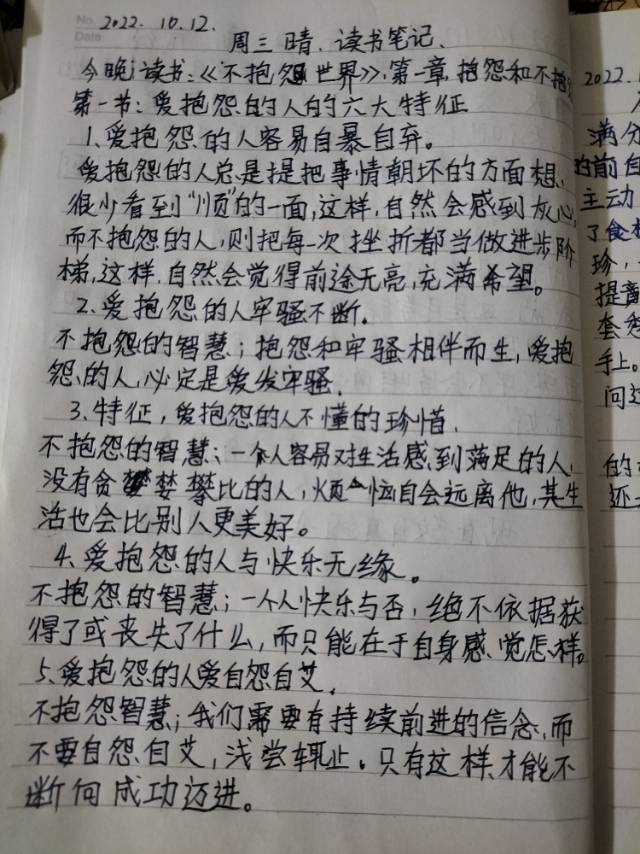 No. 2022.10.12.
Date
周三 晴. 读书笔记.
今晚读书:《不抱怨世界》,第一章 抱怨和不抱
第一节: 爱抱怨的人的六大特征
1、爱抱怨的人容易自暴自弃。
爱抱怨的人总是提把事情朝坏的方面想,
很少看到"顺"的一面,这样,自然会感到灰心,
而不抱怨的人,则把每一次挫折都当做进步阶
梯,这样,自然会觉得前途无亮,充满希望。
2、爱抱怨的人牢骚不断.
不抱怨的智慧;抱怨和牢骚相伴而生,爱抱
怨的人,必定是爱发牢骚.
3、特征,爱抱怨的人不懂的珍惜.
不抱怨的智慧;一个人容易对生活感到满足的人,
没有贪婪攀比的人,烦恼自会远离他,其生
活也会比别人更美好。
4、爱抱怨的人与快乐无缘。
不抱怨的智慧;一个人快乐与否,绝不依据获
得了或丧失了什么,而只能在于自身感觉怎样。
5、爱抱怨的人爱自怨自艾.
不抱怨智慧;我们需要有持续前进的信念,而
不要自怨自艾,浅尝辄止。只有这样,才能不
断向成功迈进。
2022.
满分
的前自
主动
了食
珍,
提音
套
手上。
问过
的
还